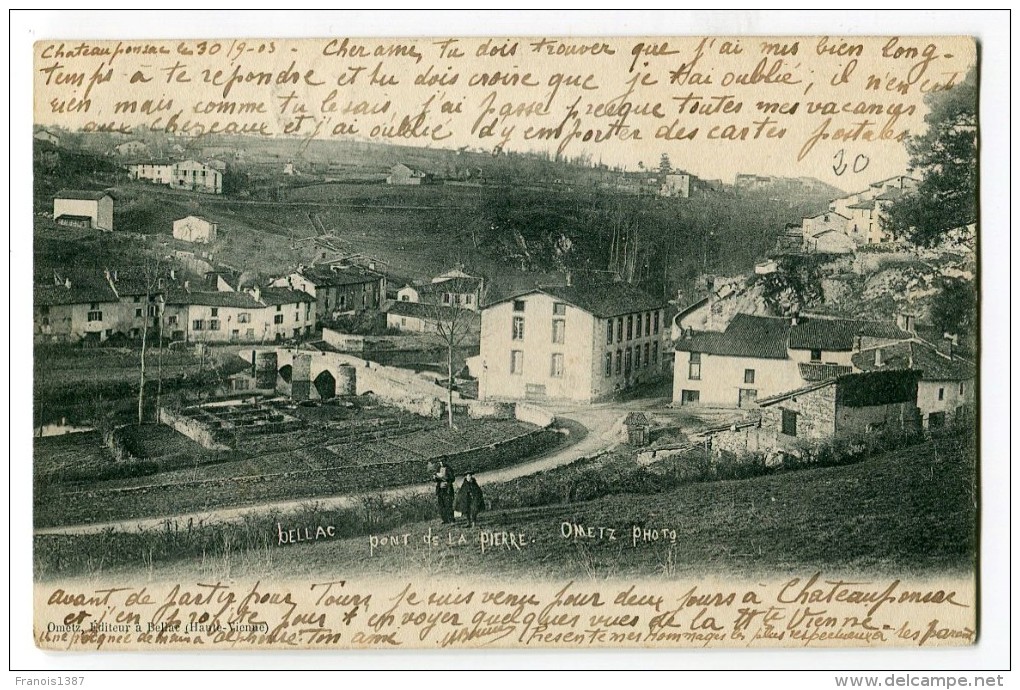 Chateauponsac les 30/9-03 - Cher ami, tu dois trouver que j'ai mis bien long-
temps à te repondre et tu dois croire que je t'ai oublié, il n'en est
rien, mais, comme tu le sais j'ai passé presque toutes mes vacances
aux Chezeaux et j'ai oublié d'y emporter des cartes postales
20
BELLAC PONT de LA PIERRE. OMETZ PHOTO
avant de partir pour Tours je suis venu pour deux jours à Chateauponsac
et j'en profite pour t'envoyer quelques vues de la Hte Vienne.
Ometz, Éditeur à Bellac (Haute-Vienne)
Une poignée de main à Alphonse ton ami Présente mes hommages les plus respectueux à tes parents
Francois1387
www.delcampe.net